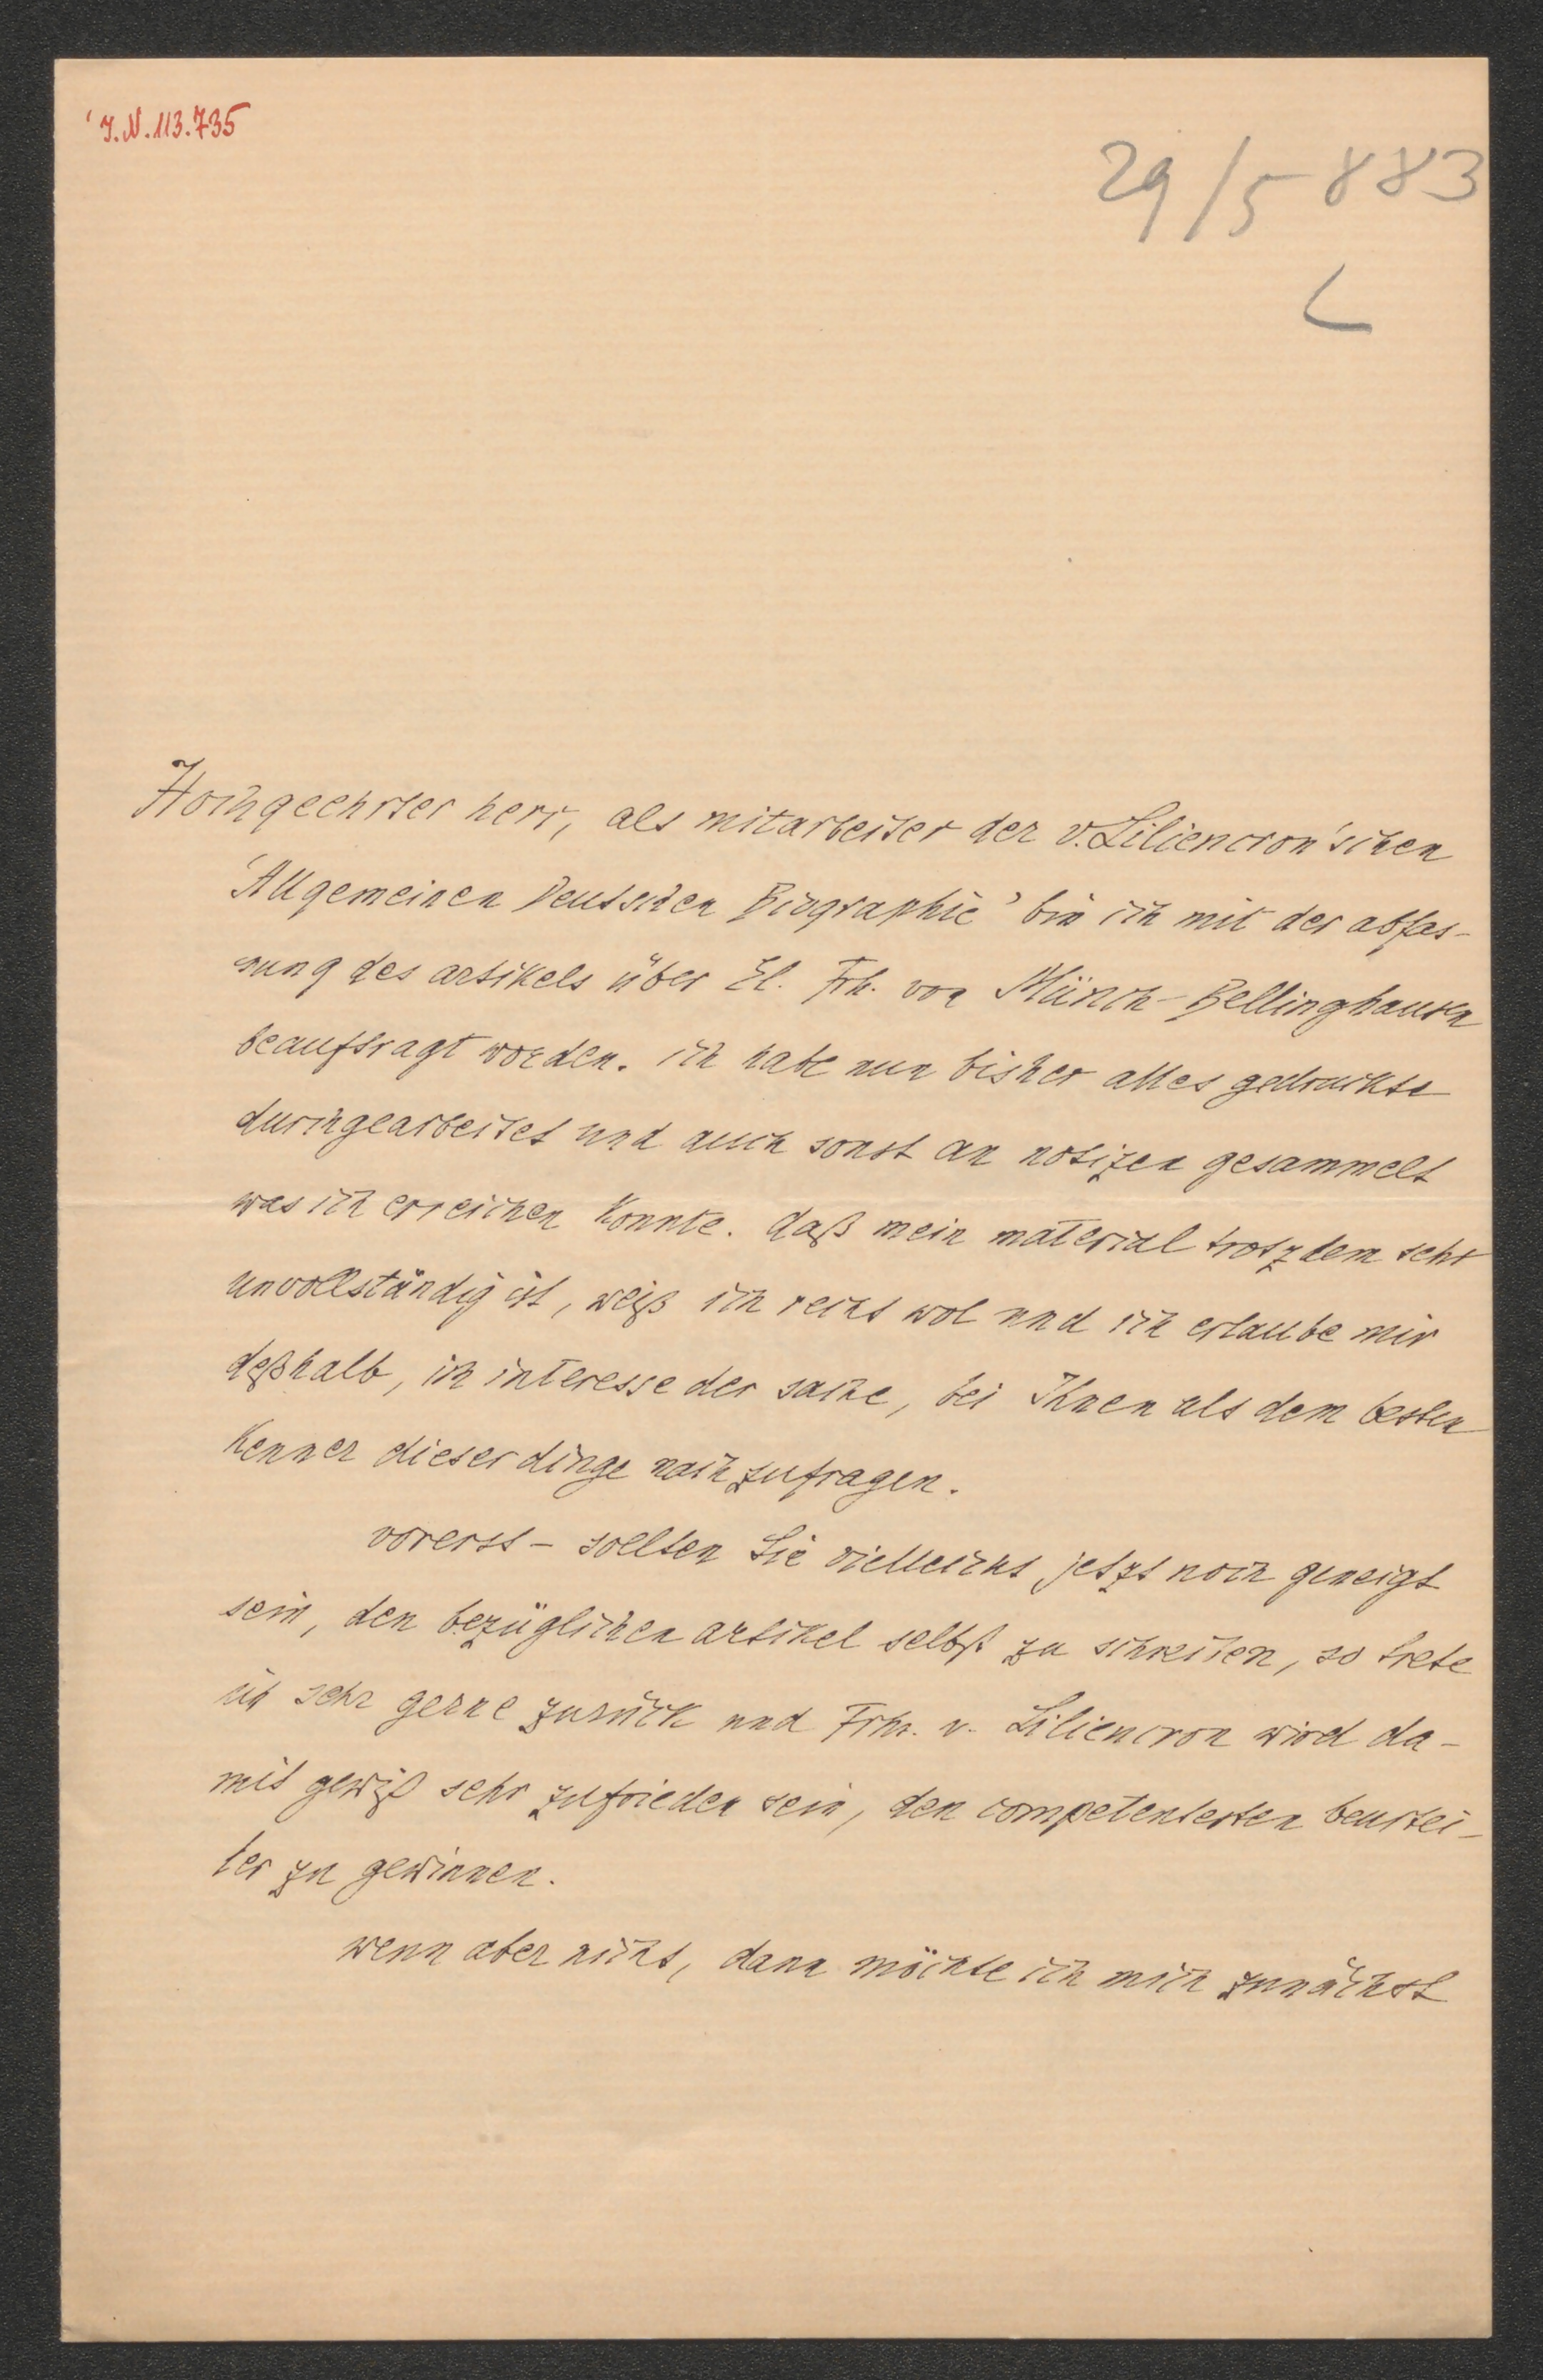 I.N. 113.735
29/5 883
L
Hochgeehrter herr, als mitarbeiter der v. Liliencron'schen
'Allgemeinen Deutschen Biographie' bin ich mit der abfas-
sung des artikels über El. Frh. von Münch-Bellinghausen
beauftragt worden. ich habe nun bisher alles gedruckte
durchgearbeitet und auch sonst an notizen gesammelt
was ich erreichen konnte. daß mein material trotzdem sehr
unvollständig ist, weiß ich recht wol und ich erlaube mir
deßhalb, im interesse der sache, bei Ihnen als dem besten
kenner dieser dinge nachzufragen.
vorerst – sollten Sie vielleicht jetzt noch geneigt
sein, den bezüglichen artikel selbst zu schreiben, so trete
ich sehr gerne zurück und Frhr. v. Liliencron wird da-
mit gewiß sehr zufrieden sein, den competentesten beurtei-
ler zu gewinnen.
wenn aber nicht, dann möchte ich mich zunächst